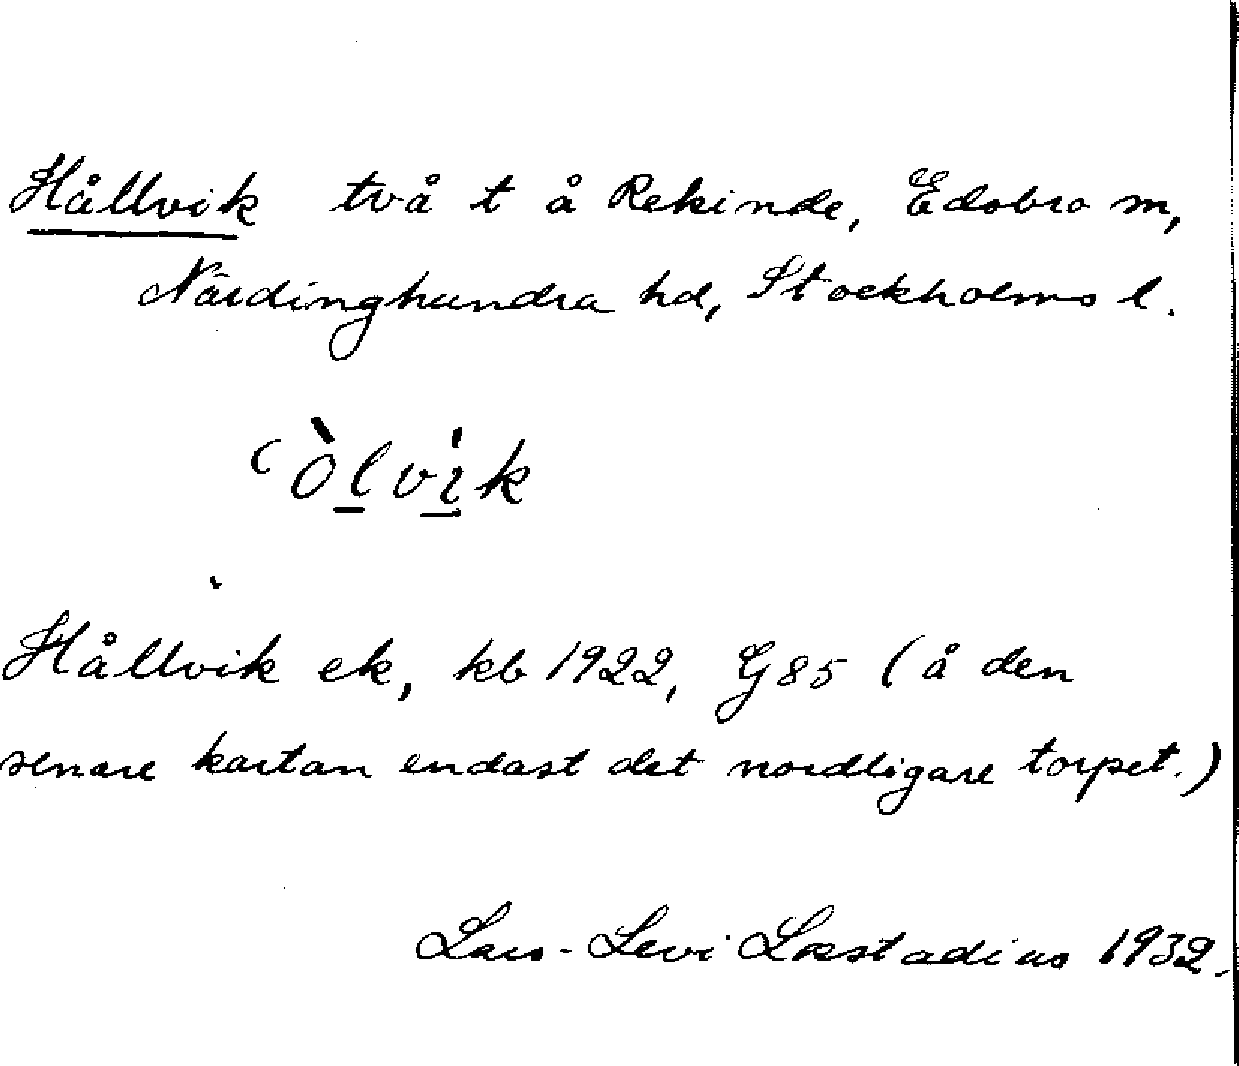 Hållvik två t å Rekinde, Edsbro sn,
Närdinghundra hd, Stockholms l.
ʿòlvik
Hållvik ek, kb 1922, G85 (å den
senare kartan endast det nordligare torpet.)
Lars-Levi Læstadius 1932.